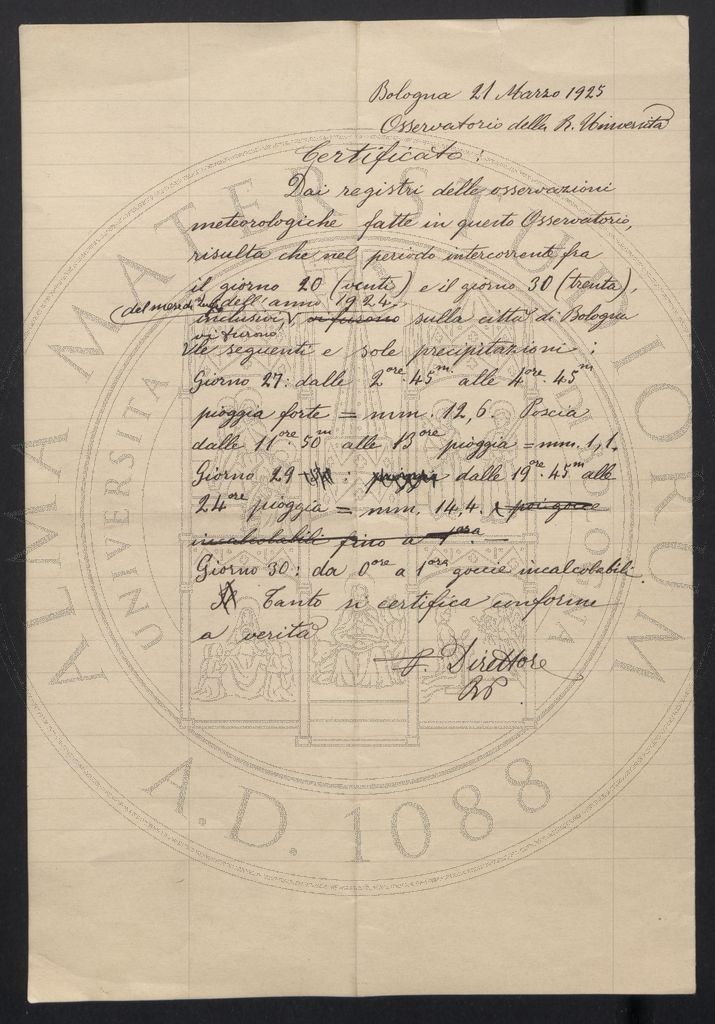 Bologna 21 Marzo 1925
Osservatorio della R. Università
Certificato:
Dai registri delle osservazioni
meteorologiche fatte in questo Osservatorio,
risulta che nel periodo intercorrente fra
il giorno 20 (venti) e il giorno 30 (trenta),
(del mese di dell'anno 1924.
inclusivi, vi furono sulla città di Bologna
vi furono
le seguenti e sole precipitazioni:
Giorno 27: dalle 2ore 45m alle 4ore 45m
pioggia forte = mm. 12,6. Poscia
dalle 11ore 50m alle 13ore pioggia = mm. 1,1.
Giorno 29 : pioggia dalle 19ore 45m alle
24ore pioggia = mm. 14,4. poi gocce
incalcolabili fino a 1ora
Giorno 30: da 0ore a 1ora goccie incalcolabili.
Tanto si certifica conforme
a verità
Direttore
ALMA MATER STUDIORUM
UNIVERSITÀ DI BOLOGNA
A.D. 1088